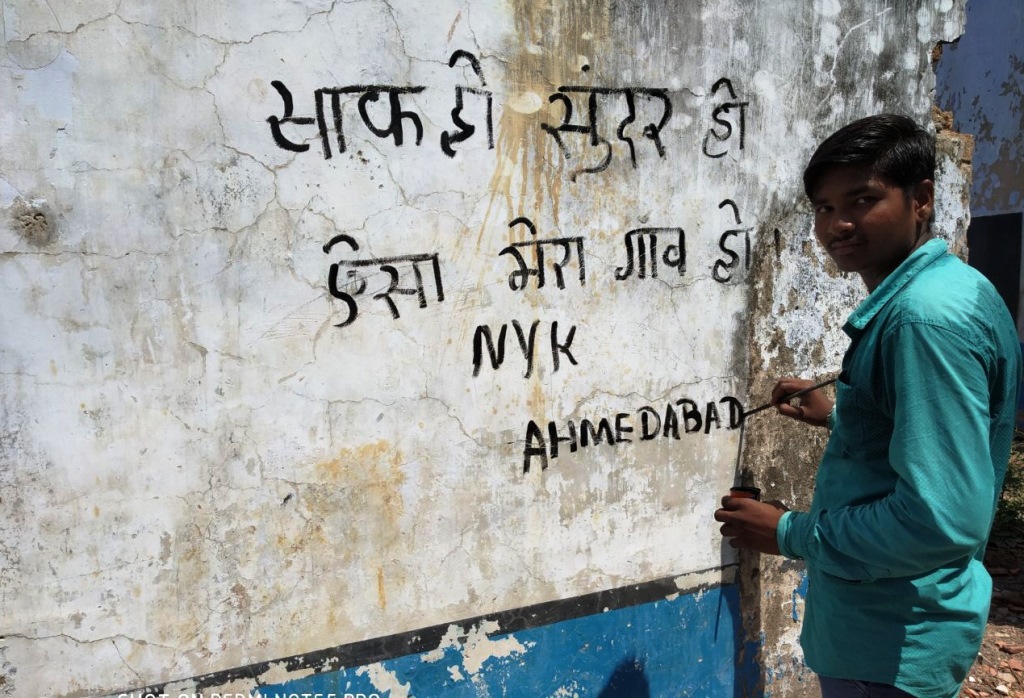 साफ हो सुंदर हो
ऐसा मेरा गांव हो
NYK
AHMEDABAD
SHOT ON REDMI NOTE5 PRO